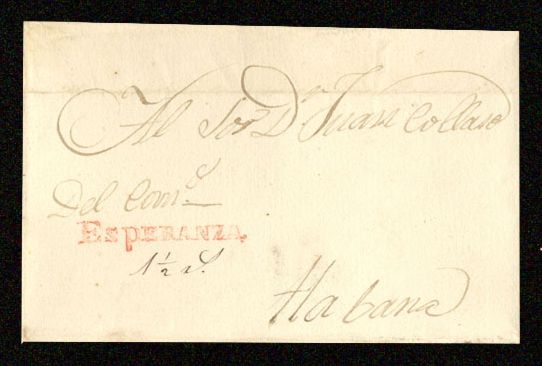 Al Sor Dn Juan Collaso
Del Comº
ESPERANZA
1½ rl.
Habana